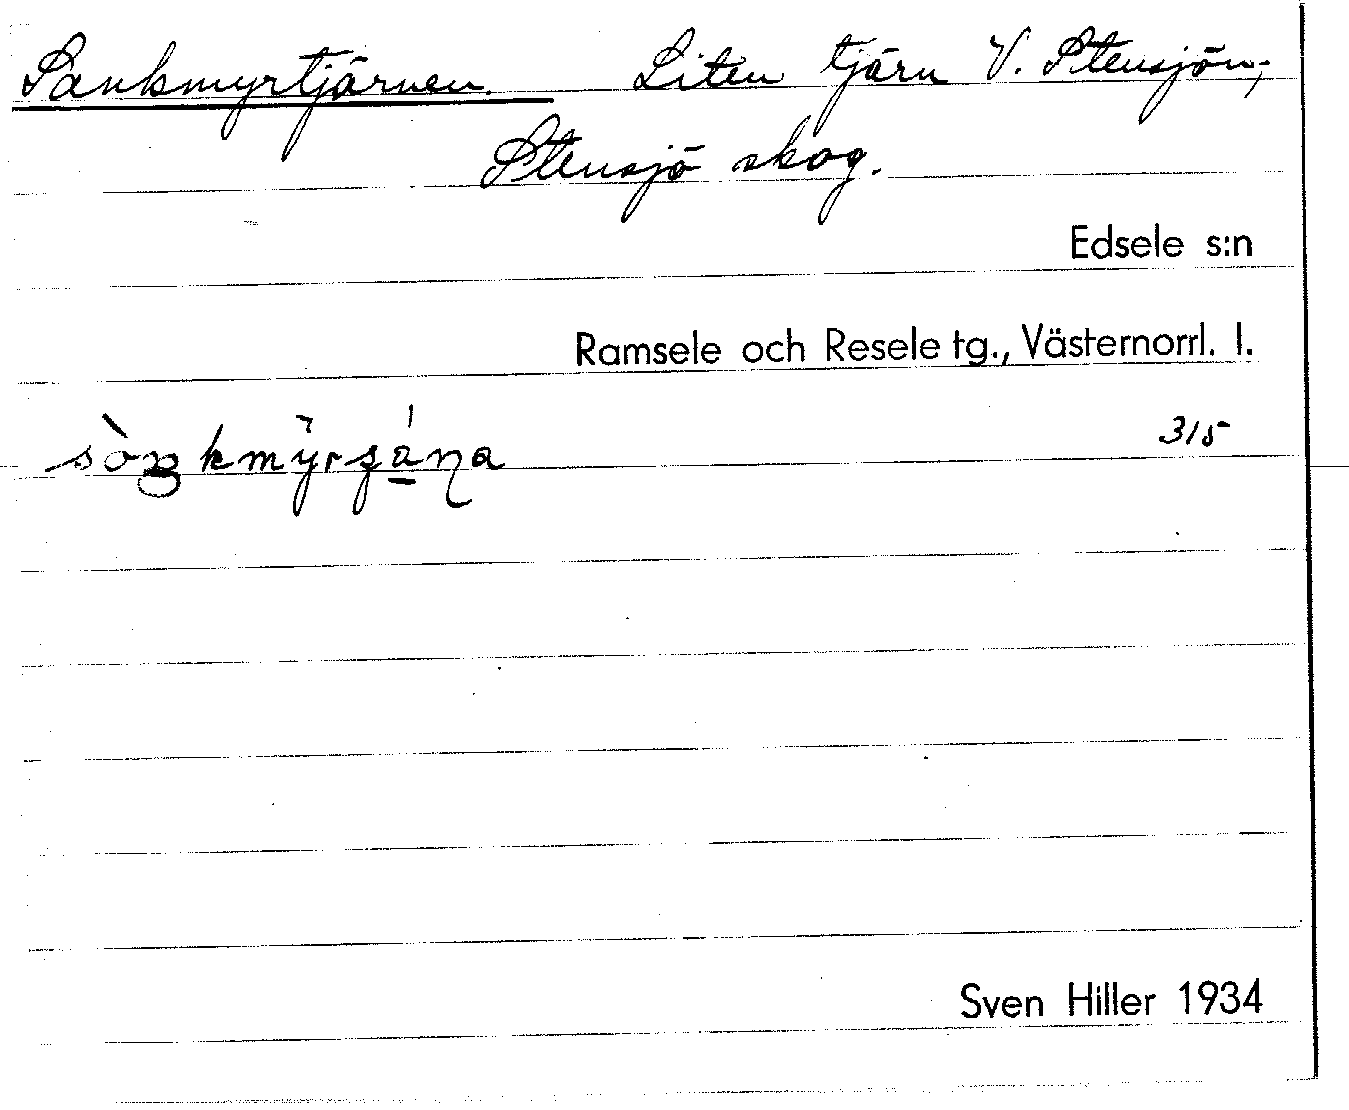 Sankmyrtjärnen. Liten tjärn V. Stensjön,
Stensjö skog.
Edsele s:n
Ramsele och Resele tg., Västernorrl. l.
315
Sven Hiller 1934